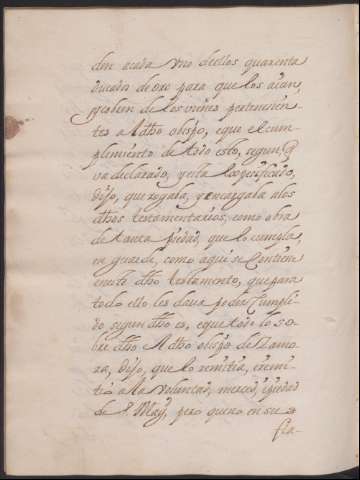 den acada vno dellos quarenta
ducados de oro para que los aian,
y cobren de los vienes pertenecien
tes a el dho obispo, e que el cum-
plimiento de todo esto, segun, q
va declarado, y esta especificado,
dijo, que rogaba, y encargaba a los
dhos testamentarios, como obra
de tanta piedad, que lo cumpla,
en guarde, como aqui se Contiene
en este dho testamento, que para
todo ello les daua poder Cumpli-
do segun dho es, e que todo lo so-
bre dho el dho obispo de Zamo-
ra, Dijo, que lo remitia, e remi-
tió a la voluntad, merced, i piedad
de S. Mag, pero que no en su
fia-